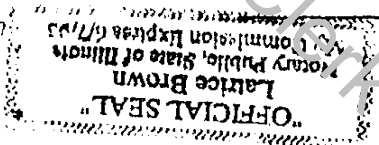 "OFFICIAL SEAL"
Latrice Brown
Notary Public, State of Illinois
My Commission Expires 6/7/93
Clerk